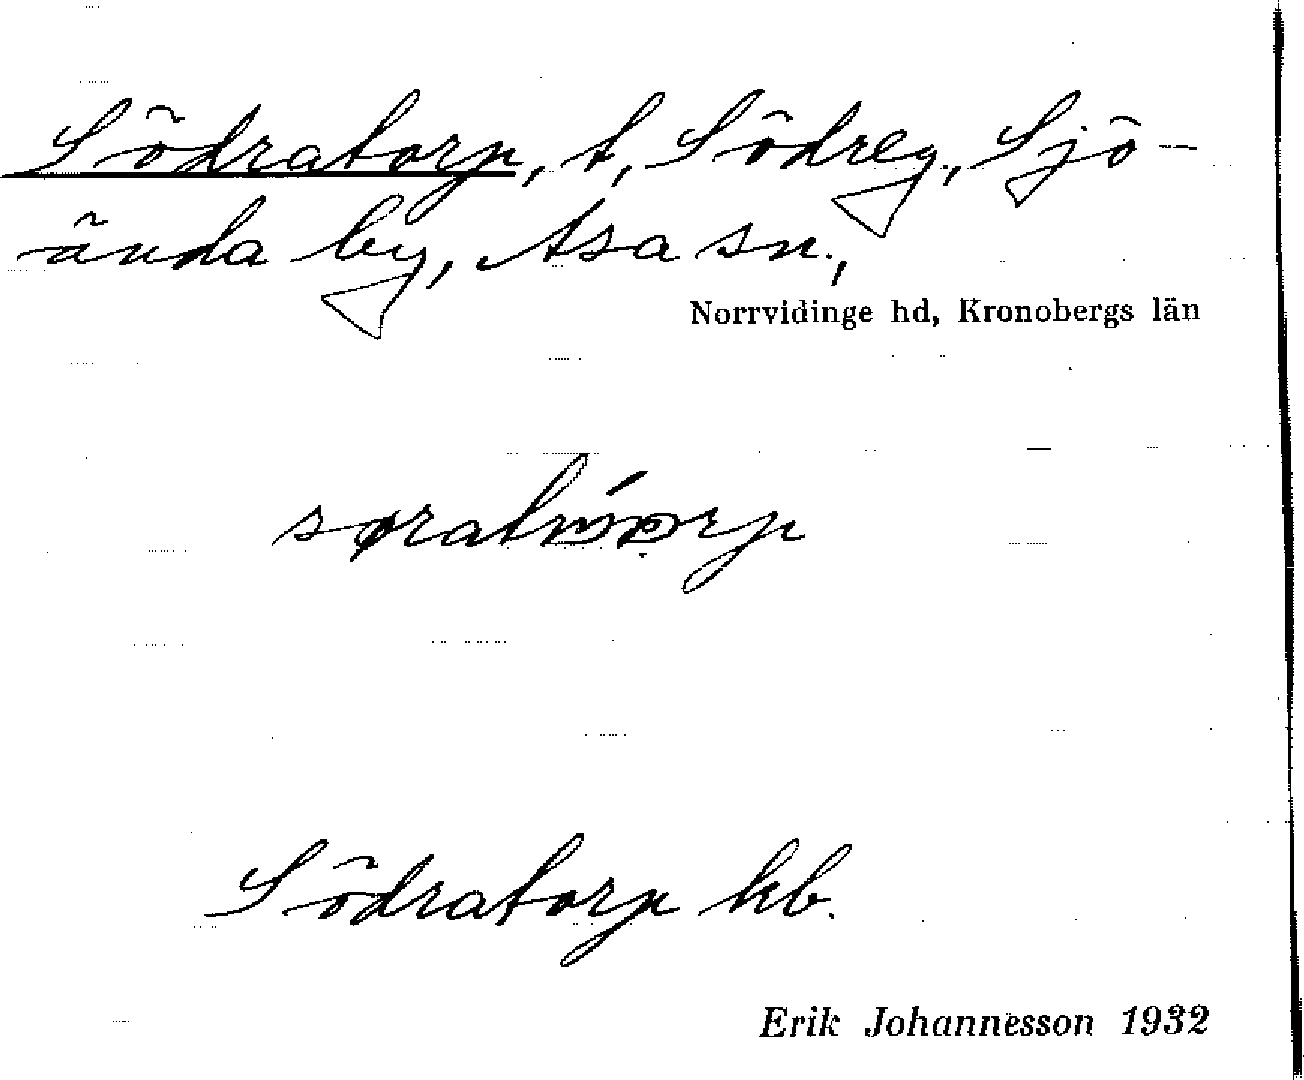 Södratorp, t, Södreg, Sjö-
ända by, Asa sn.,
Norrvidinge hd, Kronobergs län
Södratorp kb.
Erik Johannesson 1932